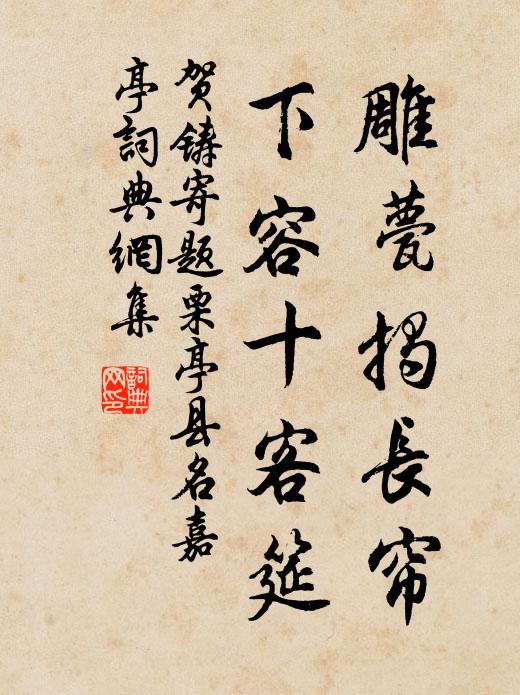 雕甍揭長帘
下容十客筵
贺鑄寄题栗亭县名嘉
亭詞典網集
詞典網印